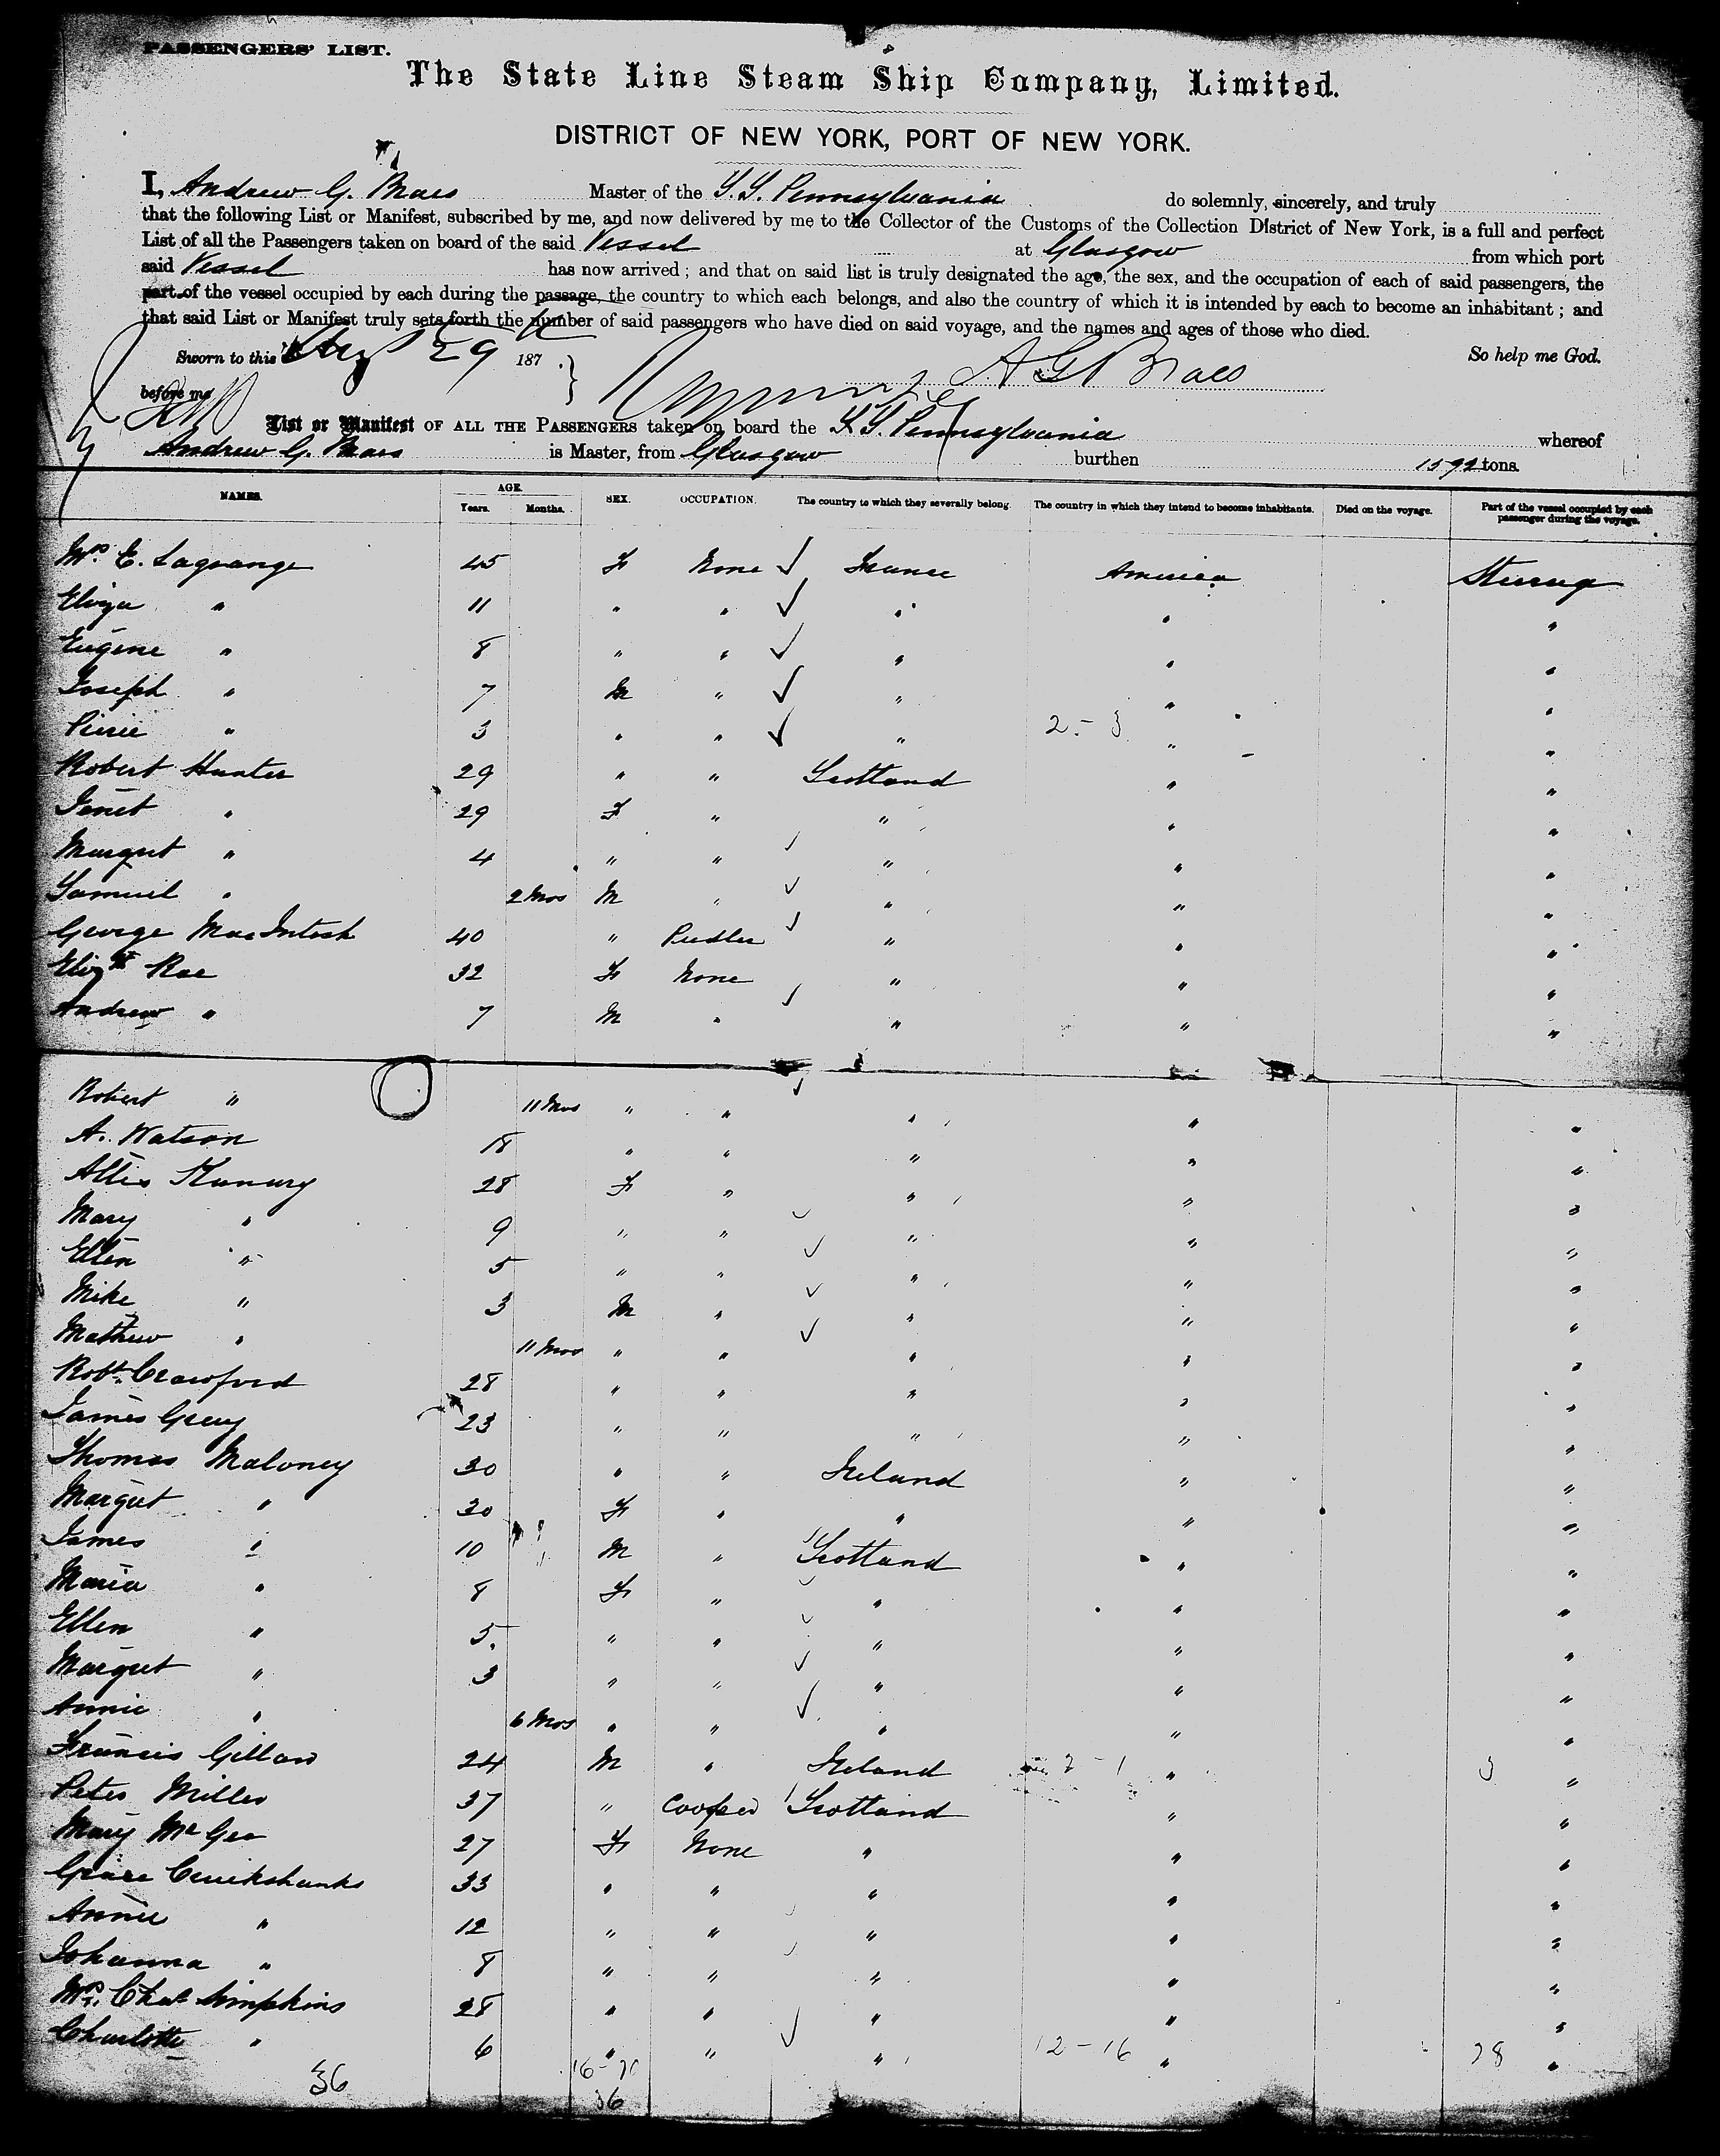 PASSENGERS' LIST.
The State Line Steam Ship Company, Limited.
DISTRICT OF NEW YORK, PORT OF NEW YORK.
I, Andrew G. Braes Master of the S.S. Pennsylvania do solemnly, sincerely, and truly
that the following List or Manifest, subscribed by me, and now delivered by me to the Collector of the Customs of the Collection District of New York, is a full and perfect
List of all the Passengers taken on board of the said Vessel at Glasgow from which port
said Vessel has now arrived; and that on said list is truly designated the age, the sex, and the occupation of each of said passengers, the
part of the vessel occupied by each during the passage, the country to which each belongs, and also the country of which it is intended by each to become an inhabitant; and
that said List or Manifest truly sets forth the number of said passengers who have died on said voyage, and the names and ages of those who died.
Sworn to this 29 187 So help me God.
before me A G Braes
List or Manifest OF ALL THE PASSENGERS taken on board the S.S. Pennsylvania whereof
Andrew G. Braes is Master, from Glasgow burthen 1592 tons.
NAMES. AGE. SEX. OCCUPATION. The country to which they severally belong. The country in which they intend to become inhabitants. Died on the voyage. Part of the vessel occupied by each passenger during the voyage.
Years. Months.
Mrs. E. Lagrange 45 F None France America Steerage
Eliza " 11 " " " " "
Eugene " 8 " " " " "
Joseph " 7 M " " " "
Pierie " 3 " " " 2-3 " "
Robert Hunter 29 " " Scotland " "
Jenet " 29 F " " " "
Margret " 4 " " " " "
Samuel " 2 Mos M " " " "
George MacIntosh 40 " Pudler " " "
Elizth Rae 32 F None " " "
Andrew " 7 M " " " "
Robert " 11 Mos " " " " "
A. Watson 18 " " " " "
28 F " " " "
Mary " 9 " " " " "
Ellen " 5 " " " " "
Mike " 3 M " " " "
Mathew " 11 Mos " " " " "
Robt. Crawford 28 " " " " "
James Grey 23 " " " " "
Thomas Maloney 30 " " Ireland " "
Margret " 30 F " " " "
James " 10 M " Scotland " "
Maria " 8 F " " " "
Ellen " 5. " " " " "
Margret " 3 " " " " "
Annie " 6 Mos " " " " "
Francis Gillan 24 M " Ireland 2-1 " 3 "
Peter Miller 37 " Cooper Scotland " "
Mary McGee 27 F None " " "
Grace Cruikshanks 33 " " " " "
Annie " 12 " " " " "
Johanna " 8 " " " " "
Mrs. Chas Simpkins 28 " " " " "
Charlotte " 6 " " " 12-16 " 28 "
36 16-20
36